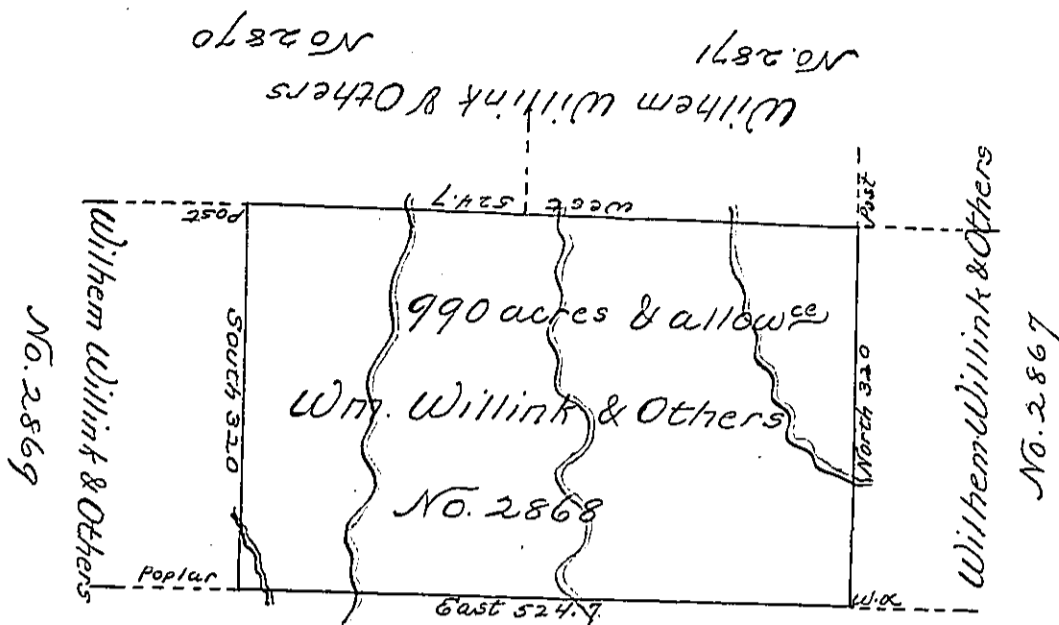 No 2870
No. 2871
Wilhem Willink & Others
West 524.7
Post
Post
Wilhem Willink & Others
No. 2869
South 320
990 acres & allowce
Wm. Willink & Others
No. 2868
North 320
Wilhem Willink & Others
No. 2867
Poplar
East 524.7.
W.